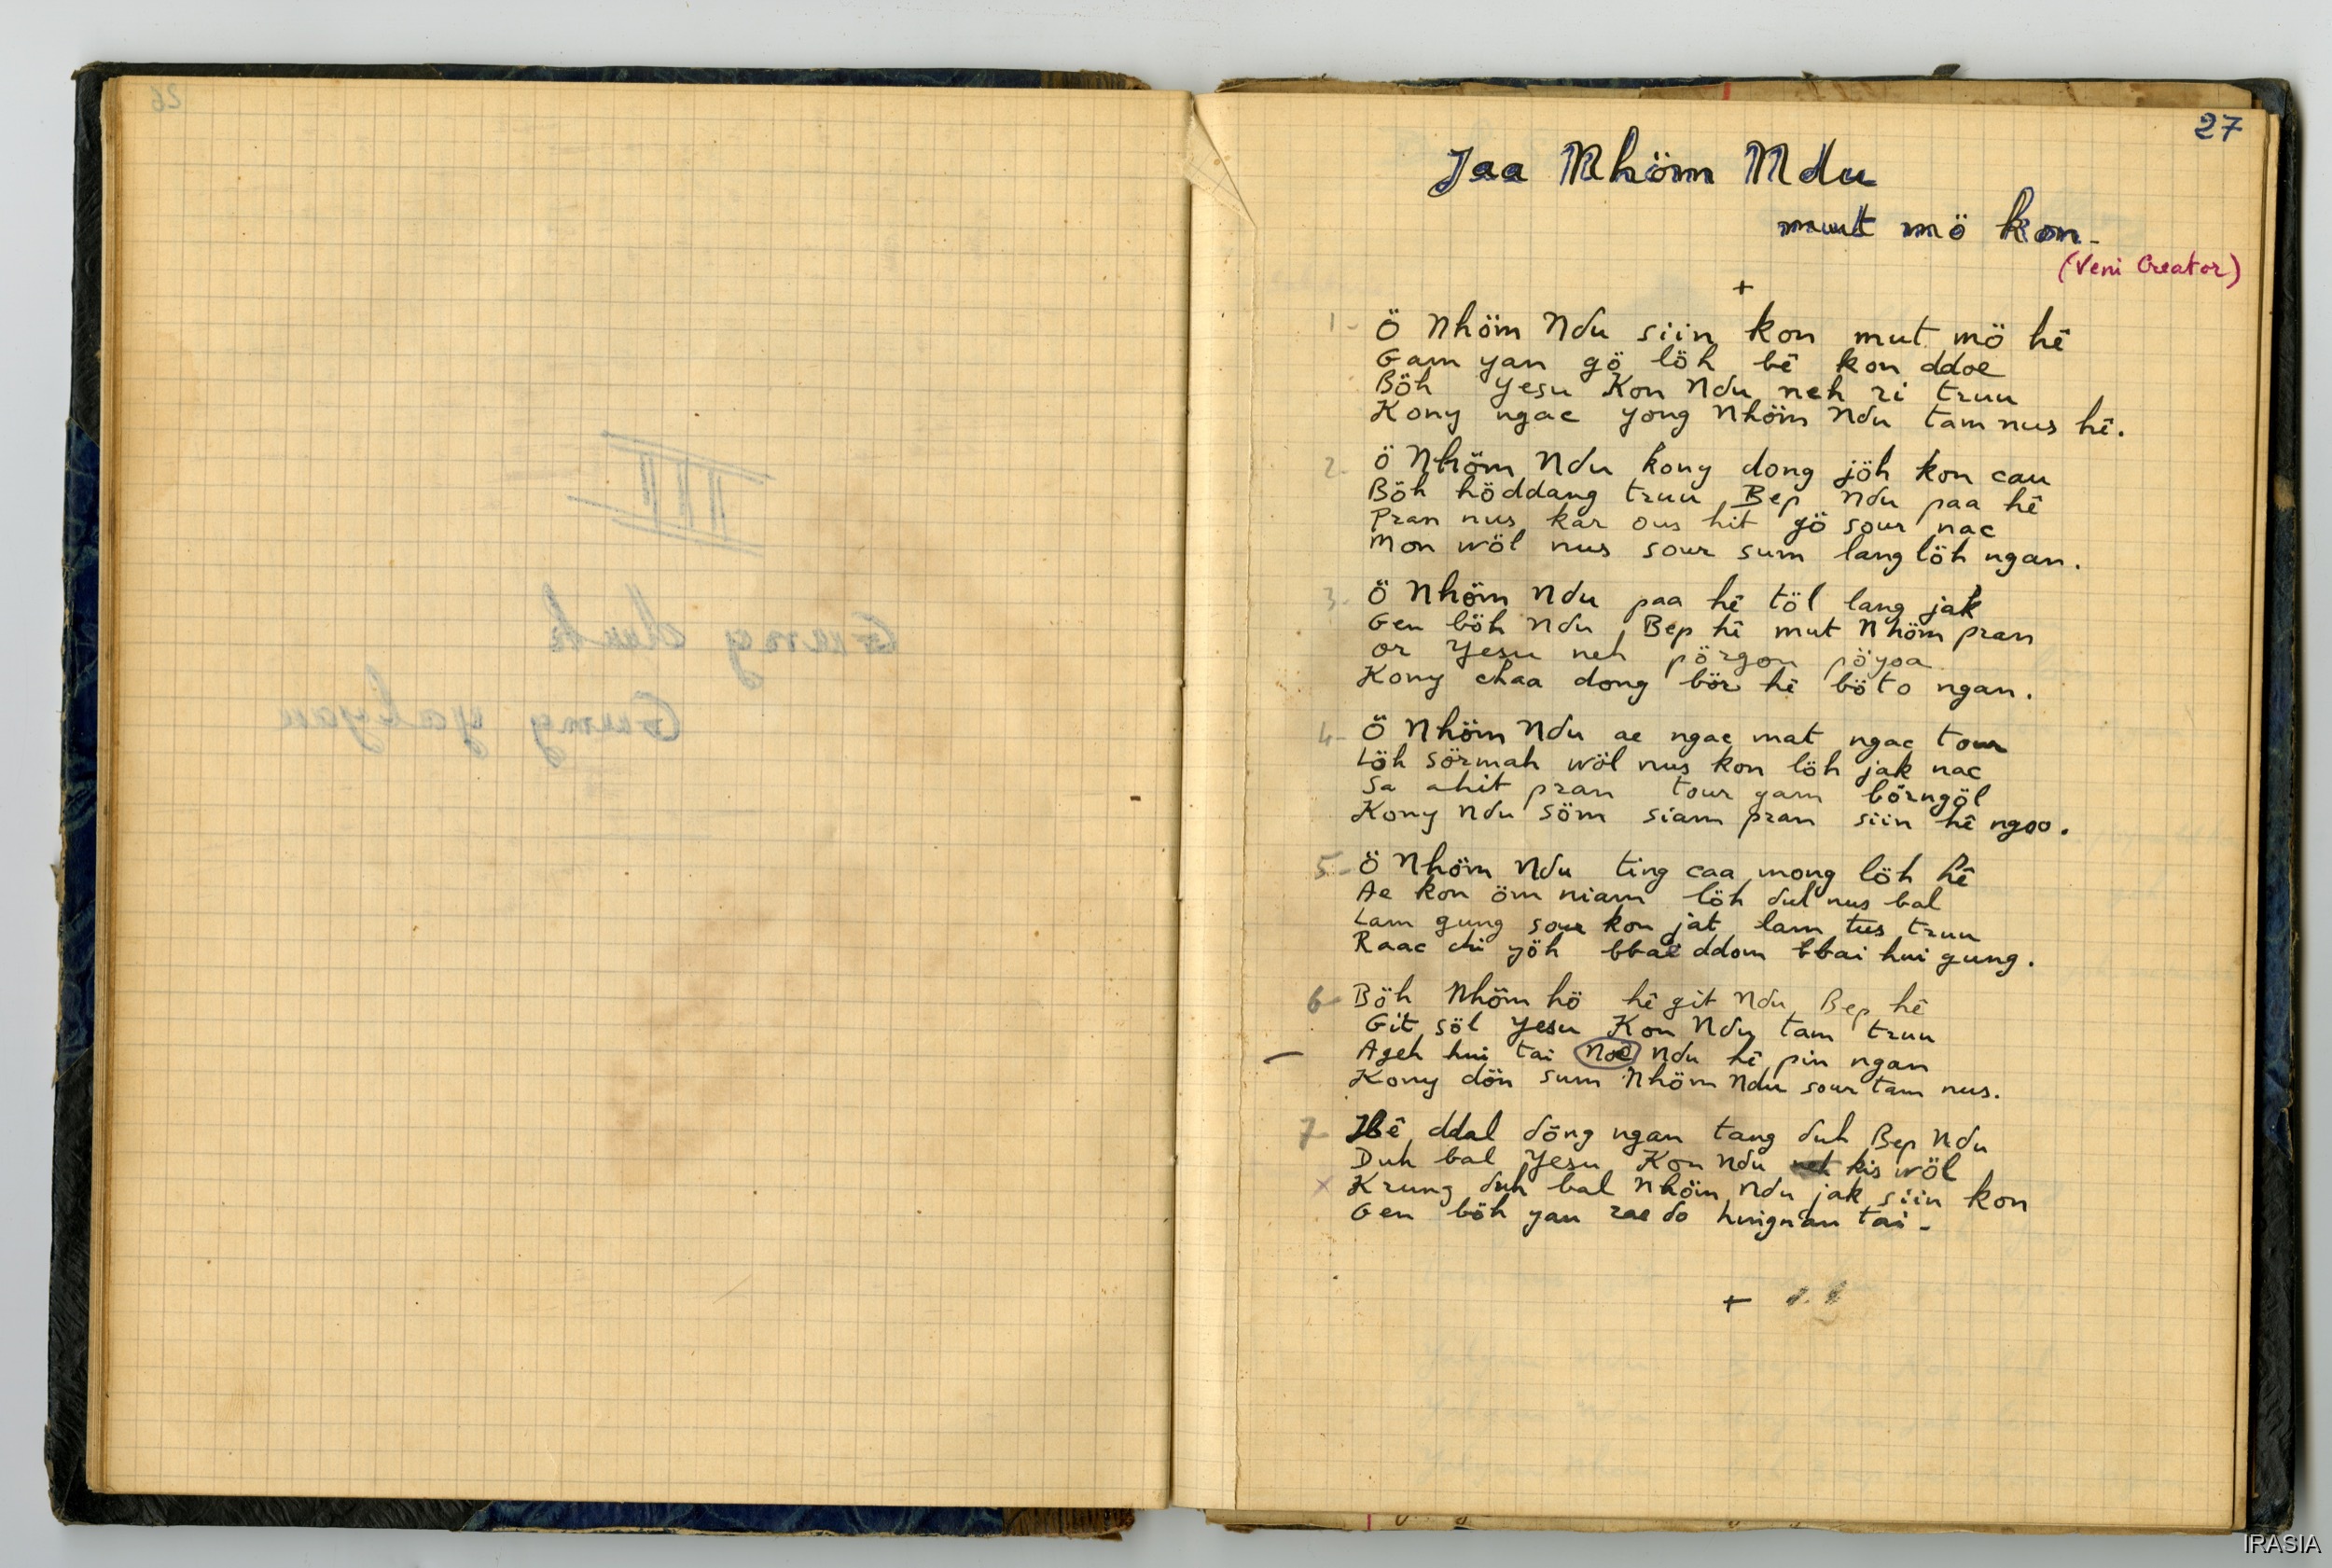 27
Jaa Nhöm Ndu
mut mö kon-
(Veni Creator)
+
1- Ö Nhöm Ndu siin kon mut mö hê
Gam yan gö löh bê kon ddoe
Böh Yesu Kon Ndu neh ri truu
Kony ngac yong Nhöm Ndu tam nus hê.
2- Ö Nhöm Ndu kony dong jöh kon cau
Böh höddang truu, Bep Ndu paa hê
Pran nus kar ous hit gö sour nac
Mon wöl nus sour sum lang löh ngan.
3- Ö Nhöm Ndu paa hê töl lang jak
Gen böh Ndu, Bep hê mut Nhöm pran
or Yesu neh pörgon pöyoa
Kony chaa dong bör hê böto ngan.
4- Ö Nhöm Ndu ae ngac mat ngac tour
Löh sörmah wöl nus kon löh jak nac
Sa ahit pran tour gam börngöl
Kony Ndu söm siam pran siin hê ngoo.
5- Ö Nhöm Ndu ting caa mong löh hê
Ae kon öm niam löh dul nus bal
Lam gung sour kon jat lam tus truu
Raac chi yöh bbae ddom bbai hui gung.
6- Böh Nhöm hö hê git Ndu Bep hê
Git söl Yesu Kon Ndu tam truu
Ageh hui tai Noe Ndu hê pin ngan
Kony dön sum Nhöm Ndu sour tam nus.
7- Hê ddal döng ngan tang duh Bep Ndu
Duh bal Yesu Kon Ndu kis wöl
x Krung duh bal Nhöm Ndu jak siin kon
Gen böh yau rae do huignau tai-
+